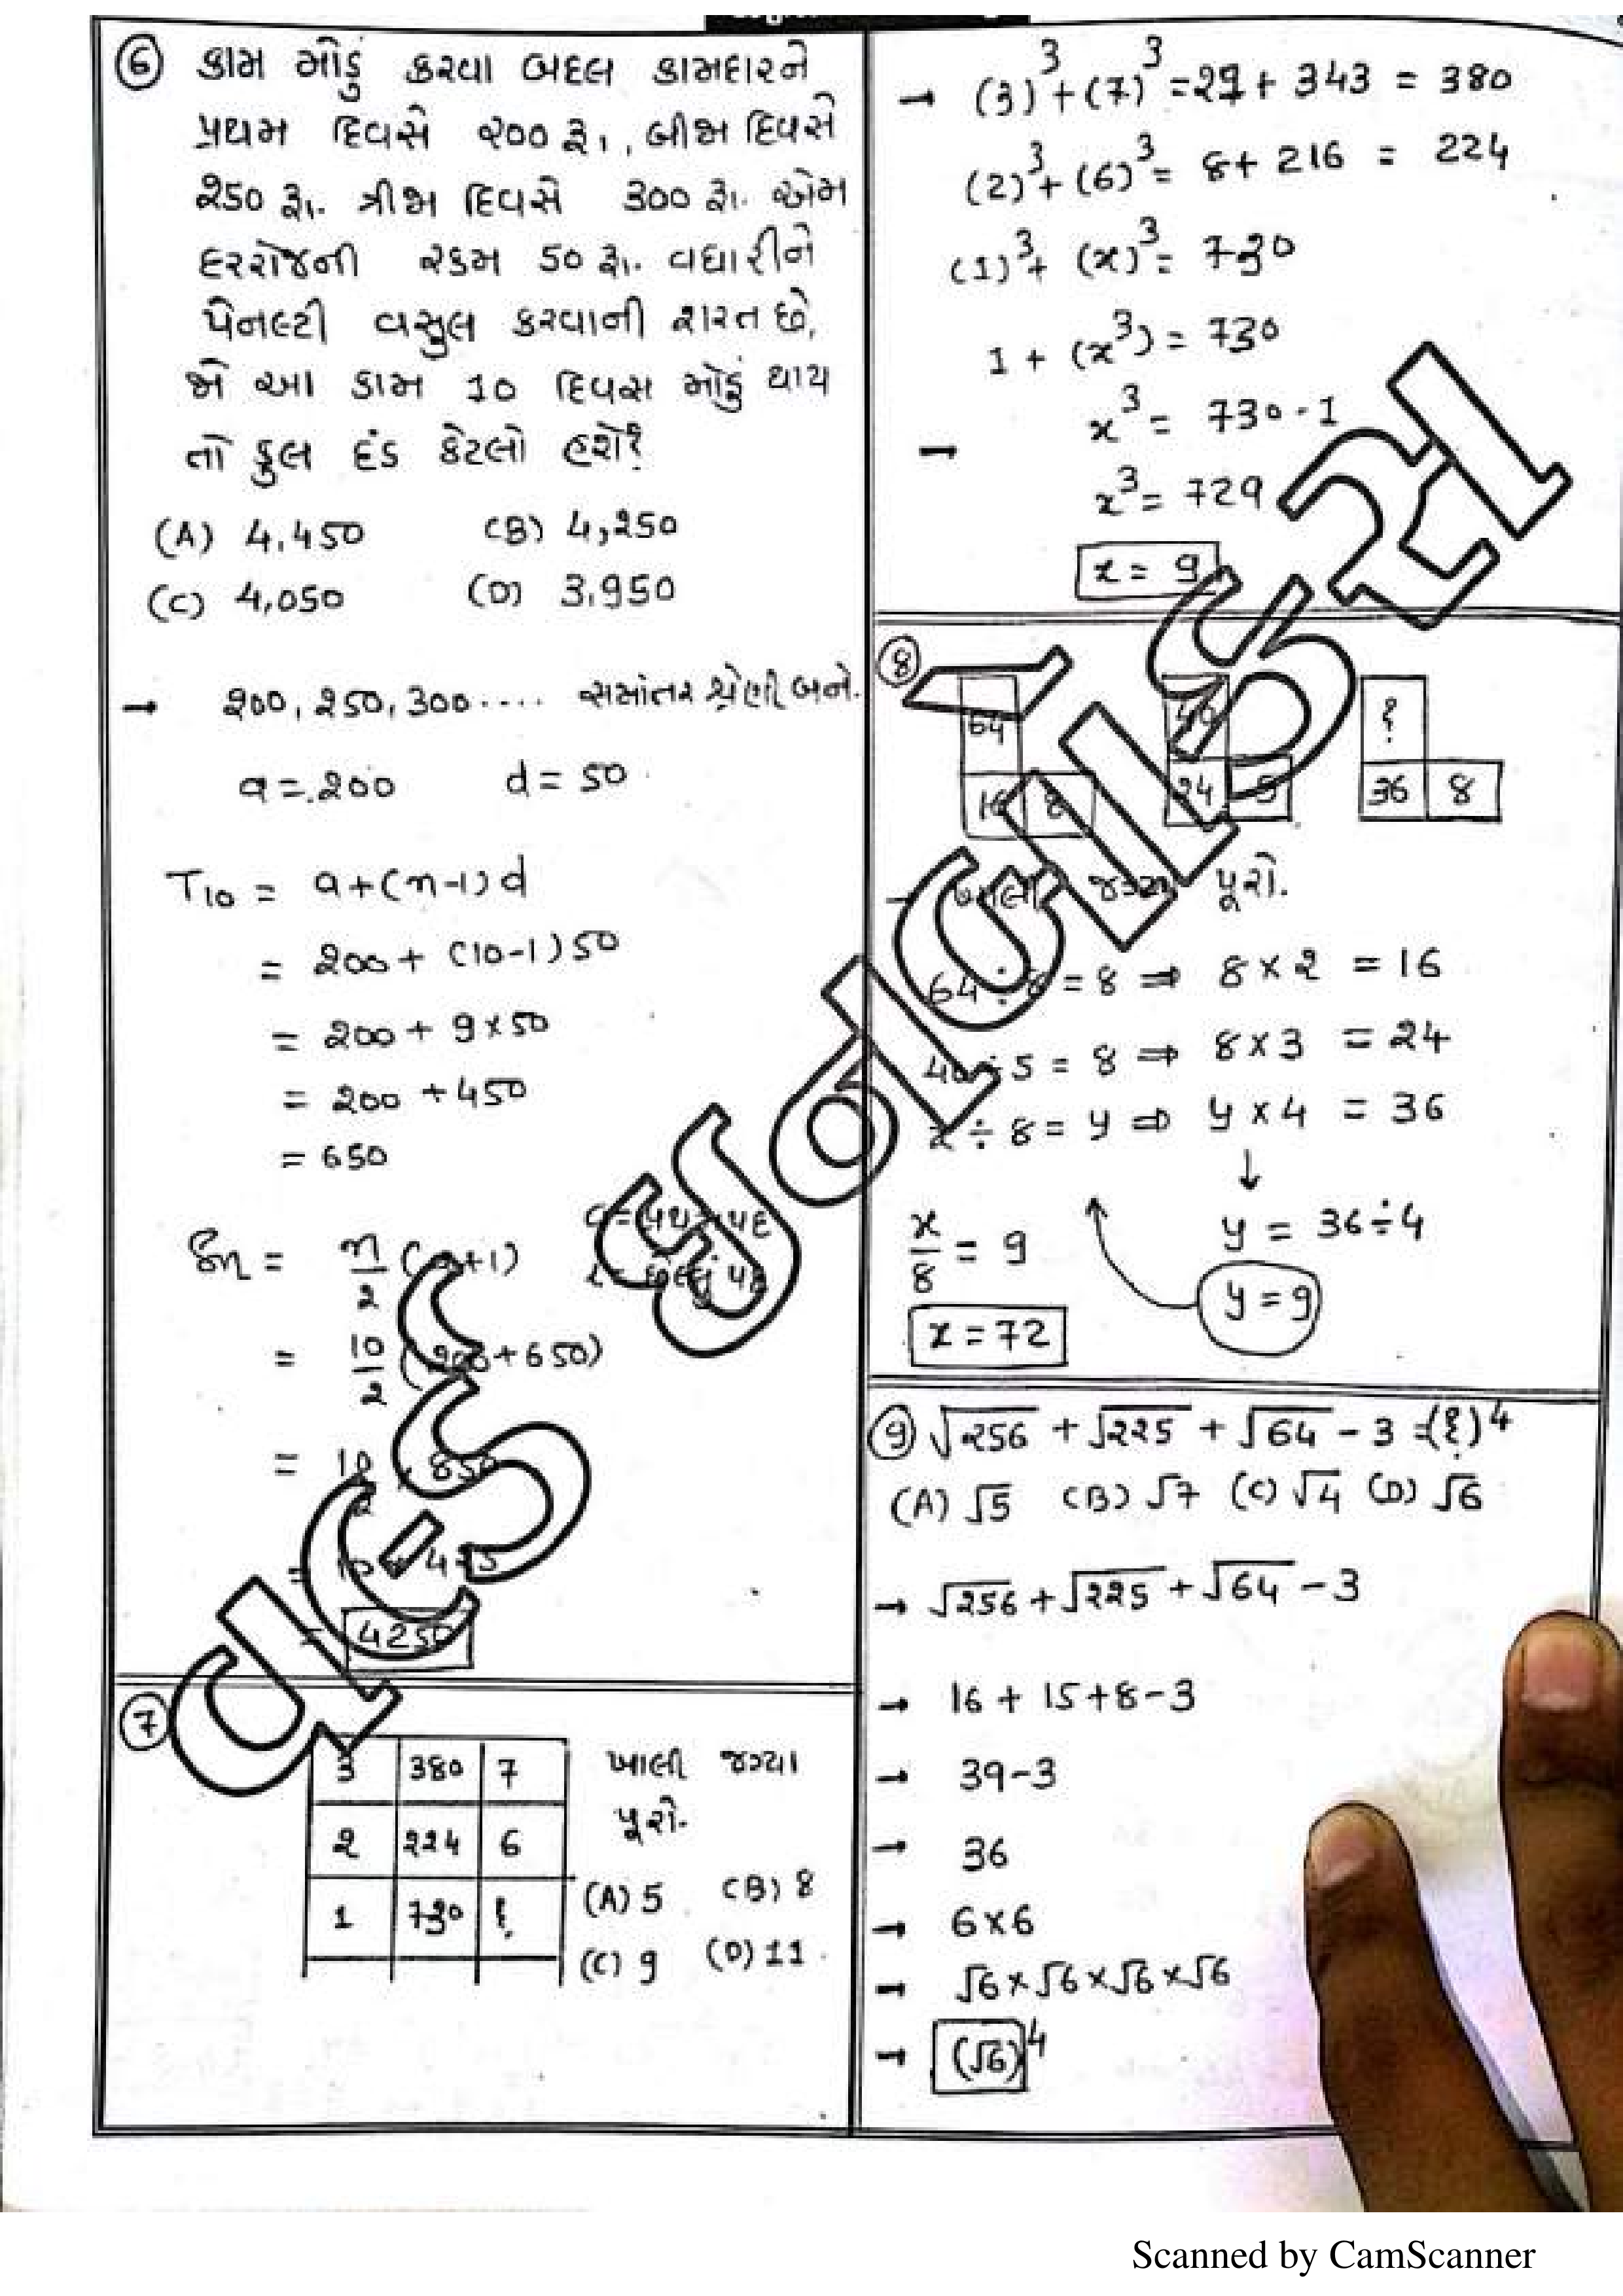 ⑥ કામ મોડું કરવા બદલ કામદારને
પ્રથમ દિવસે ૨00 રૂ।., બીજા દિવસે
૨50 રૂ।. ત્રીજા દિવસે 300 રૂ।. એમ
દરરોજની રકમ 50 રૂ।. વધારીને
પેનલ્ટી વસુલ કરવાની શરત છે,
જો આ કામ 10 દિવસ મોડું થાય
તો કુલ દંડ કેટલો હશે?
(A) 4,450 (B) 4,૨50
(C) 4,050 (D) 3,950
→ ૨00, ૨50, 300.... સમાંતર શ્રેણી બને.
a = ૨00 d = 50
T10 = a+(n-1)d
= ૨00 + (10-1)50
= ૨00 + 9×50
= ૨00 + 450
= 650
Sn = n/૨
= 10/૨ (૨00+650)
= 10/૨ 850
= 425
= 4250
⑦
3 380 7
૨ ૨૨4 6
1 730 ?
ખાલી જગ્યા
પૂરો.
(A) 5 (B) 8
(C) 9 (D) 11
→ (3)³+(7)³ = 27 + 343 = 380
(2)³+(6)³ = 8 + 216 = 224
(1)³+(x)³ = 730
1 + (x³) = 730
→ x³ = 730-1
x³ = 729
x = 9
⑧
64 40 ?
16 8 24 5 36 8
→ ખાલી જગ્યા પૂરો.
64 ÷ 8 = 8 ⇒ 8 × ૨ = 16
40 ÷ 5 = 8 ⇒ 8 × 3 = 24
x ÷ 8 = y ⇒ y × 4 = 36
↓
y = 36÷4
x/8 = 9
y = 9
x = 72
⑨ √૨56 + √૨૨5 + √64 - 3 = (?)⁴
(A) √5 (B) √7 (C) √4 (D) √6
→ √૨56 + √૨૨5 + √64 - 3
→ 16 + 15+8-3
→ 39-3
→ 36
→ 6×6
→ √6 × √6 × √6 × √6
→ (√6)⁴
Scanned by CamScanner